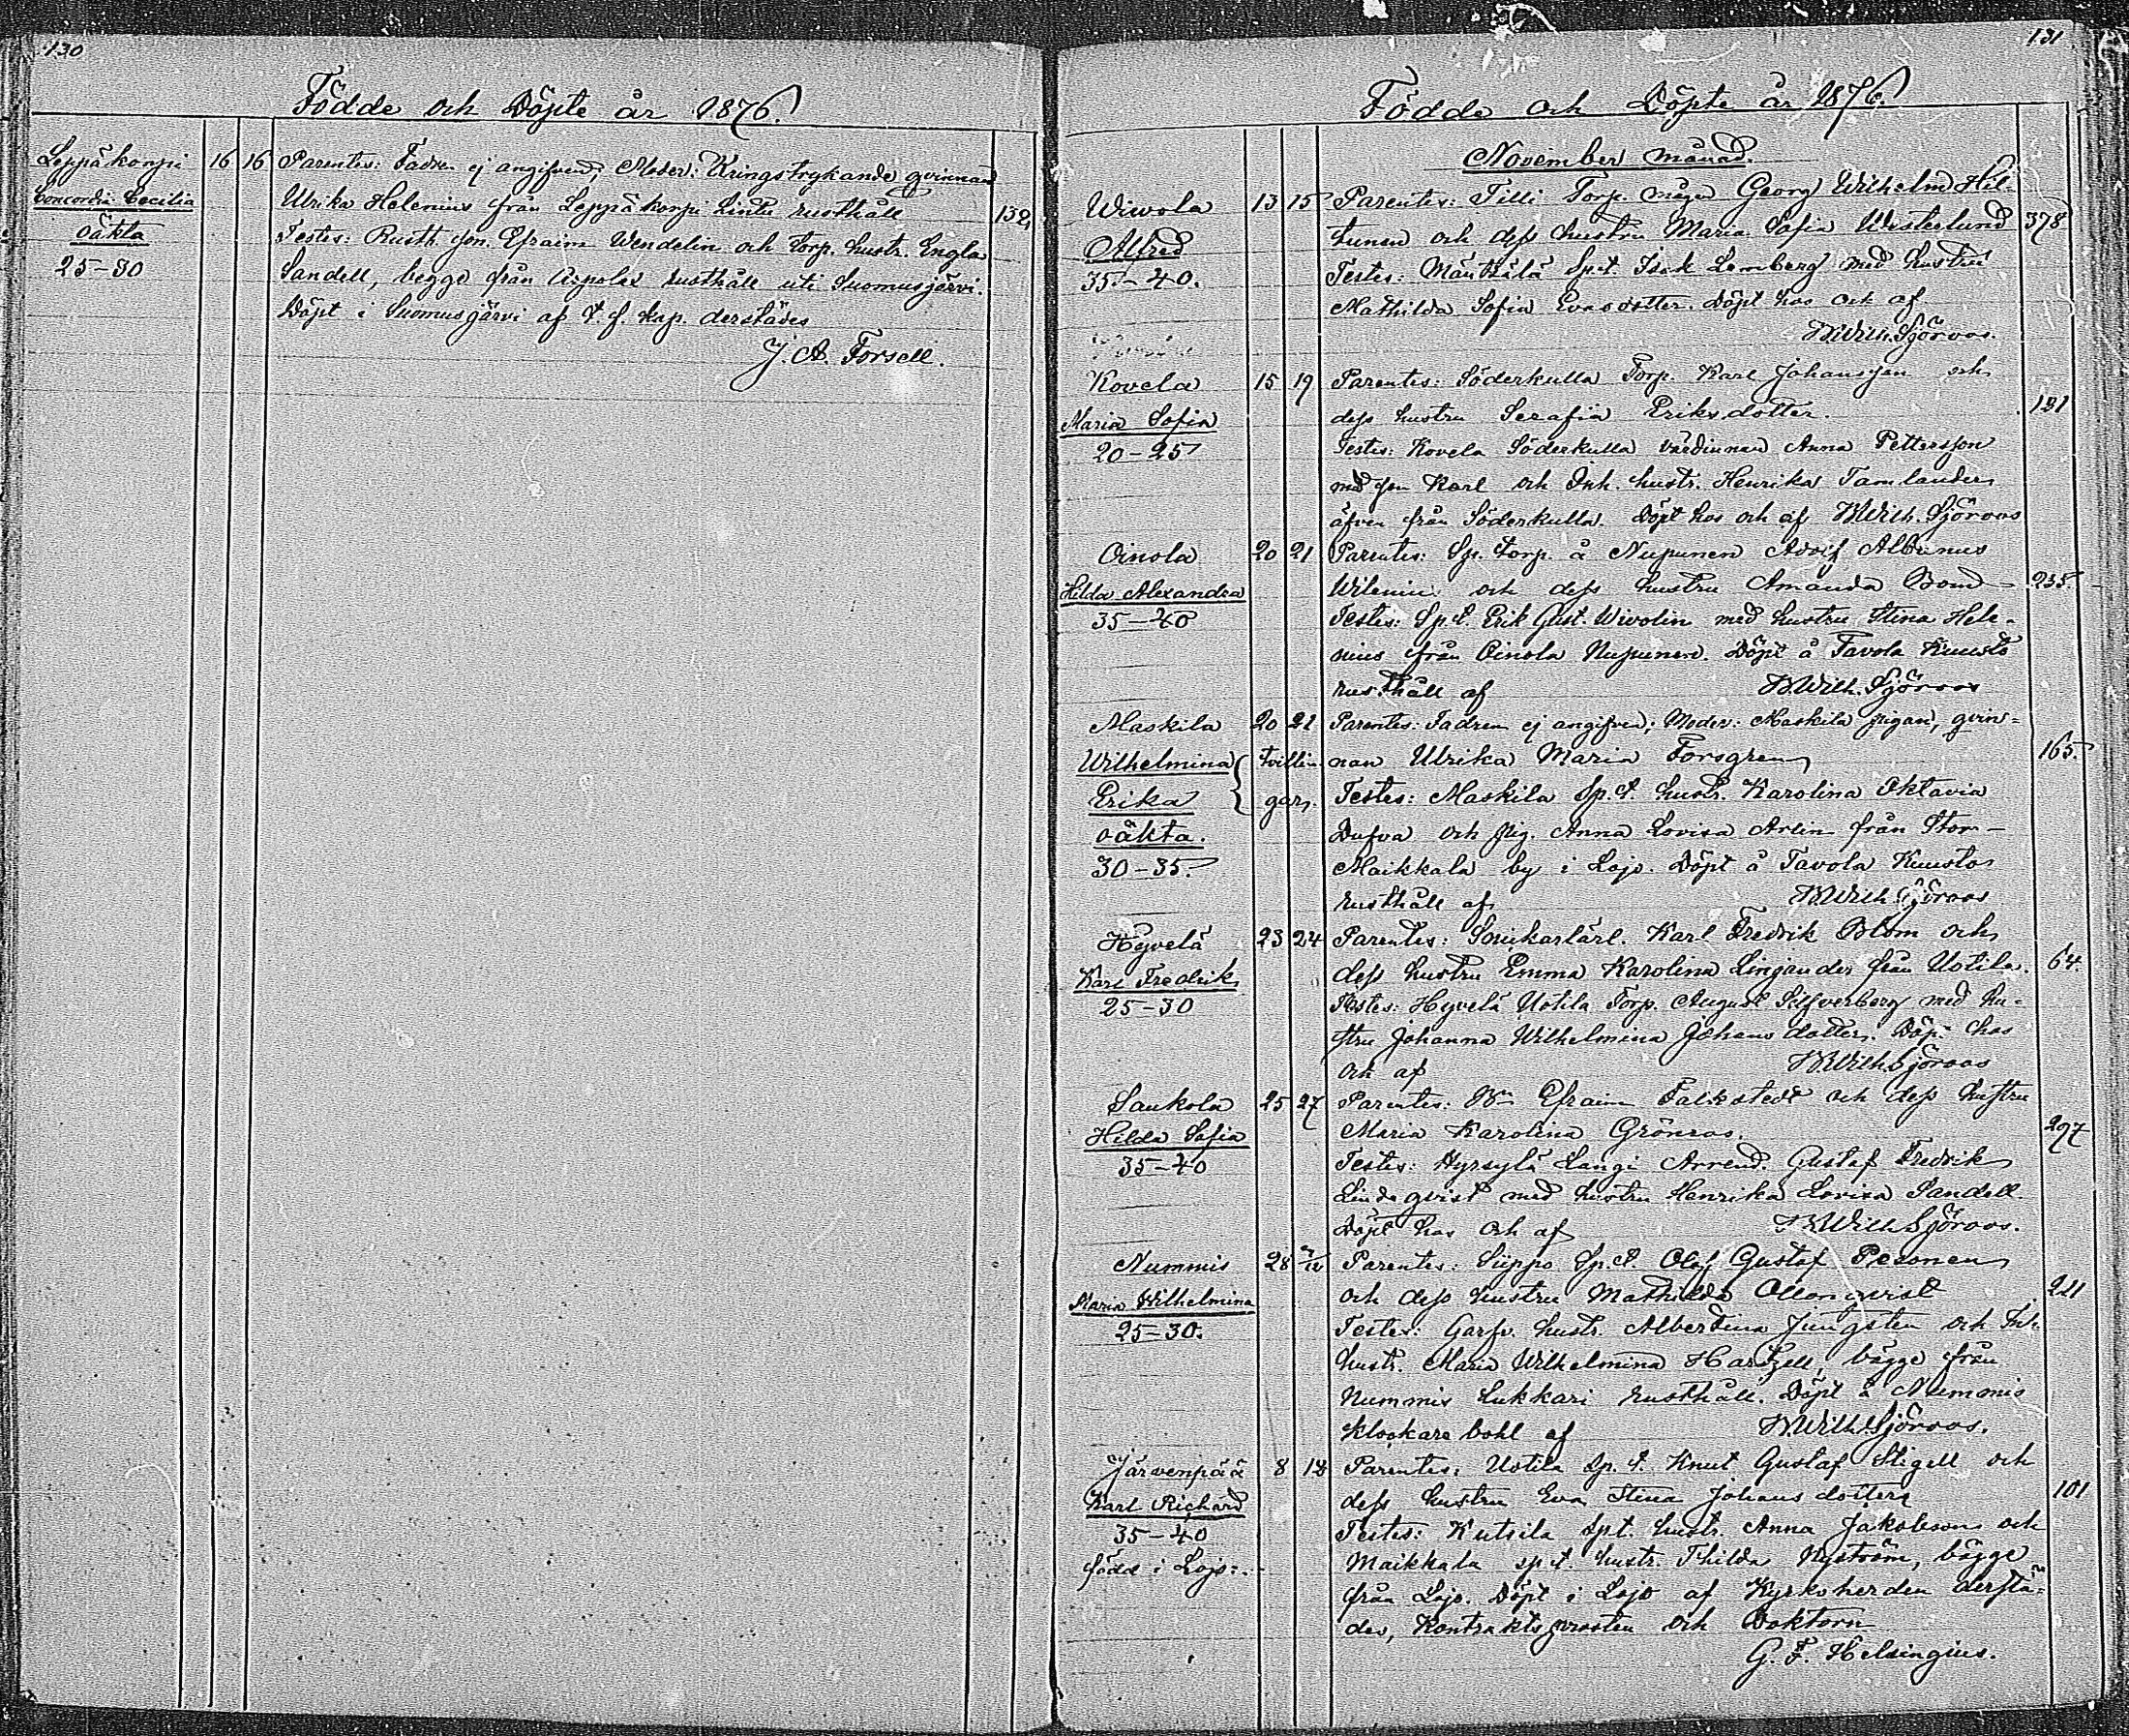 130
Födde och Döpte år 1876.
Leppäkorpi 16 16 Parentes: Fadren ej angifven; Moder: Kringstrykande qvinnan
Concordia Cecilia Ulrika Helenius från Leppäkorpi Lintu rusthåll 132
oäkta Testes: Rusth. son. Efraim Wendelin och torp. hustr. Engla
25-30 Sandell, begge från Arpola rusthåll uti Suomusjärvi.
Döpt i Suomusjärvi af v. f. kap. derstädes
J. A. Forsell.
131
Födde och Döpte år 1876.
November månad.
Wivola 13 15 Parentes: Tilli Torp. mågen Georg Wilhelm Hel-
Alfred tunen och dess hustru Maria Sofia Westerlund 378
35-40. Testes: Mäntkälä Sp.t. Isak Lemberg med hustru
Mathilda Sofia Evasdotter. Döpt hos och af
Wilh. Sjöroos.
Kovela 15 19 Parentes: Söderkulla Torp. Karl Johansson och
Maria Sofia dess hustru Serafia Eriksdotter. 191
20-25 Testes: Kovela Söderkulla värdinnan Anna Pettersson
med son Karl och Inh. hustr. Henrika Tamlander
äfven från Söderkulla. Döpt hos och af Wilh. Sjöroos
Oinola 20 21 Parentes: Sp. torp. å Nupunen Adolf Albinus
Hilda Alexandra Wilenius och dess hustru Amanda Bom 235.
35-40 Testes: Sp.t. Erik Gust. Wivolin med hustru Stina Hele-
nius från Oinola Nupunen. Döpt å Tavola Knuuts
rusthåll af Wilh. Sjöroos
Maskila 20 21 Parentes: Fadren ej angifven; Moder: Maskila pigan, qvin-
Wilhelmina { tvillin- nan Ulrika Maria Forsgren 165.
Erika { gar. Testes: Maskila Sp.t. hustr. Karolina Oktavia
oäkta. Dufva och pig. Anna Lovisa Arlin från Stor-
30-35. Maikkala by i Lojo. Döpt å Tavola Knuuts
rusthåll af Wilh. Sjöroos
Hyvelä 23 24 Parentes: Snickarlärl. Karl Fredrik Blom och
Karl Fredrik dess hustru Emma Karolina Lingander från Uotila. 64.
25-30 Testes: Hyvelä Uotila Torp. August Silfverberg med hu-
stru Johanna Wilhelmina Johansdotter. Döpt hos
och af Wilh. Sjöroos
Saukola 25 27 Parentes: Bn Efraim Falkstedt och dess hustru
Hilda Sofia Maria Karolina Grönroos. 297
35-40 Testes: Hyrsylä Langi Arrend. Gustaf Fredrik
Lindeqvist med hustru Henrika Lovisa Sandell.
Döpt hos och af Wilh. Sjöroos.
Nummis 28 2/12 Parentes: Sieppo Sp.t. Olof Gustaf Pesonen
Maria Wilhelmina och dess hustru Mathilda Ollonqvist 221
25-30. Testes: Garfv. hustr. Albertina Jungsten och Inh.
hustr. Maria Wilhelmina Hartzell, bägge från
Nummis Lukkari rusthåll. Döpt å Nummis
Klockare bohl af Wilh. Sjöroos.
Järvenpää 8 12 Parentes: Uotila Sp.t. Knut Gustaf Stigell och
Karl Richard dess hustru Eva Stina Johansdotter 101
35-40 Testes: Kutsila Spt. hustr. Anna Jakobsson och
född i Lojo. Maikkala sp.t. hustr. Thilda Nyström, bägge
från Lojo. Döpt i Lojo af Kyrkoherden derstä-
des, Kontraktsprosten och Doktorn
G. F. Helsingius.